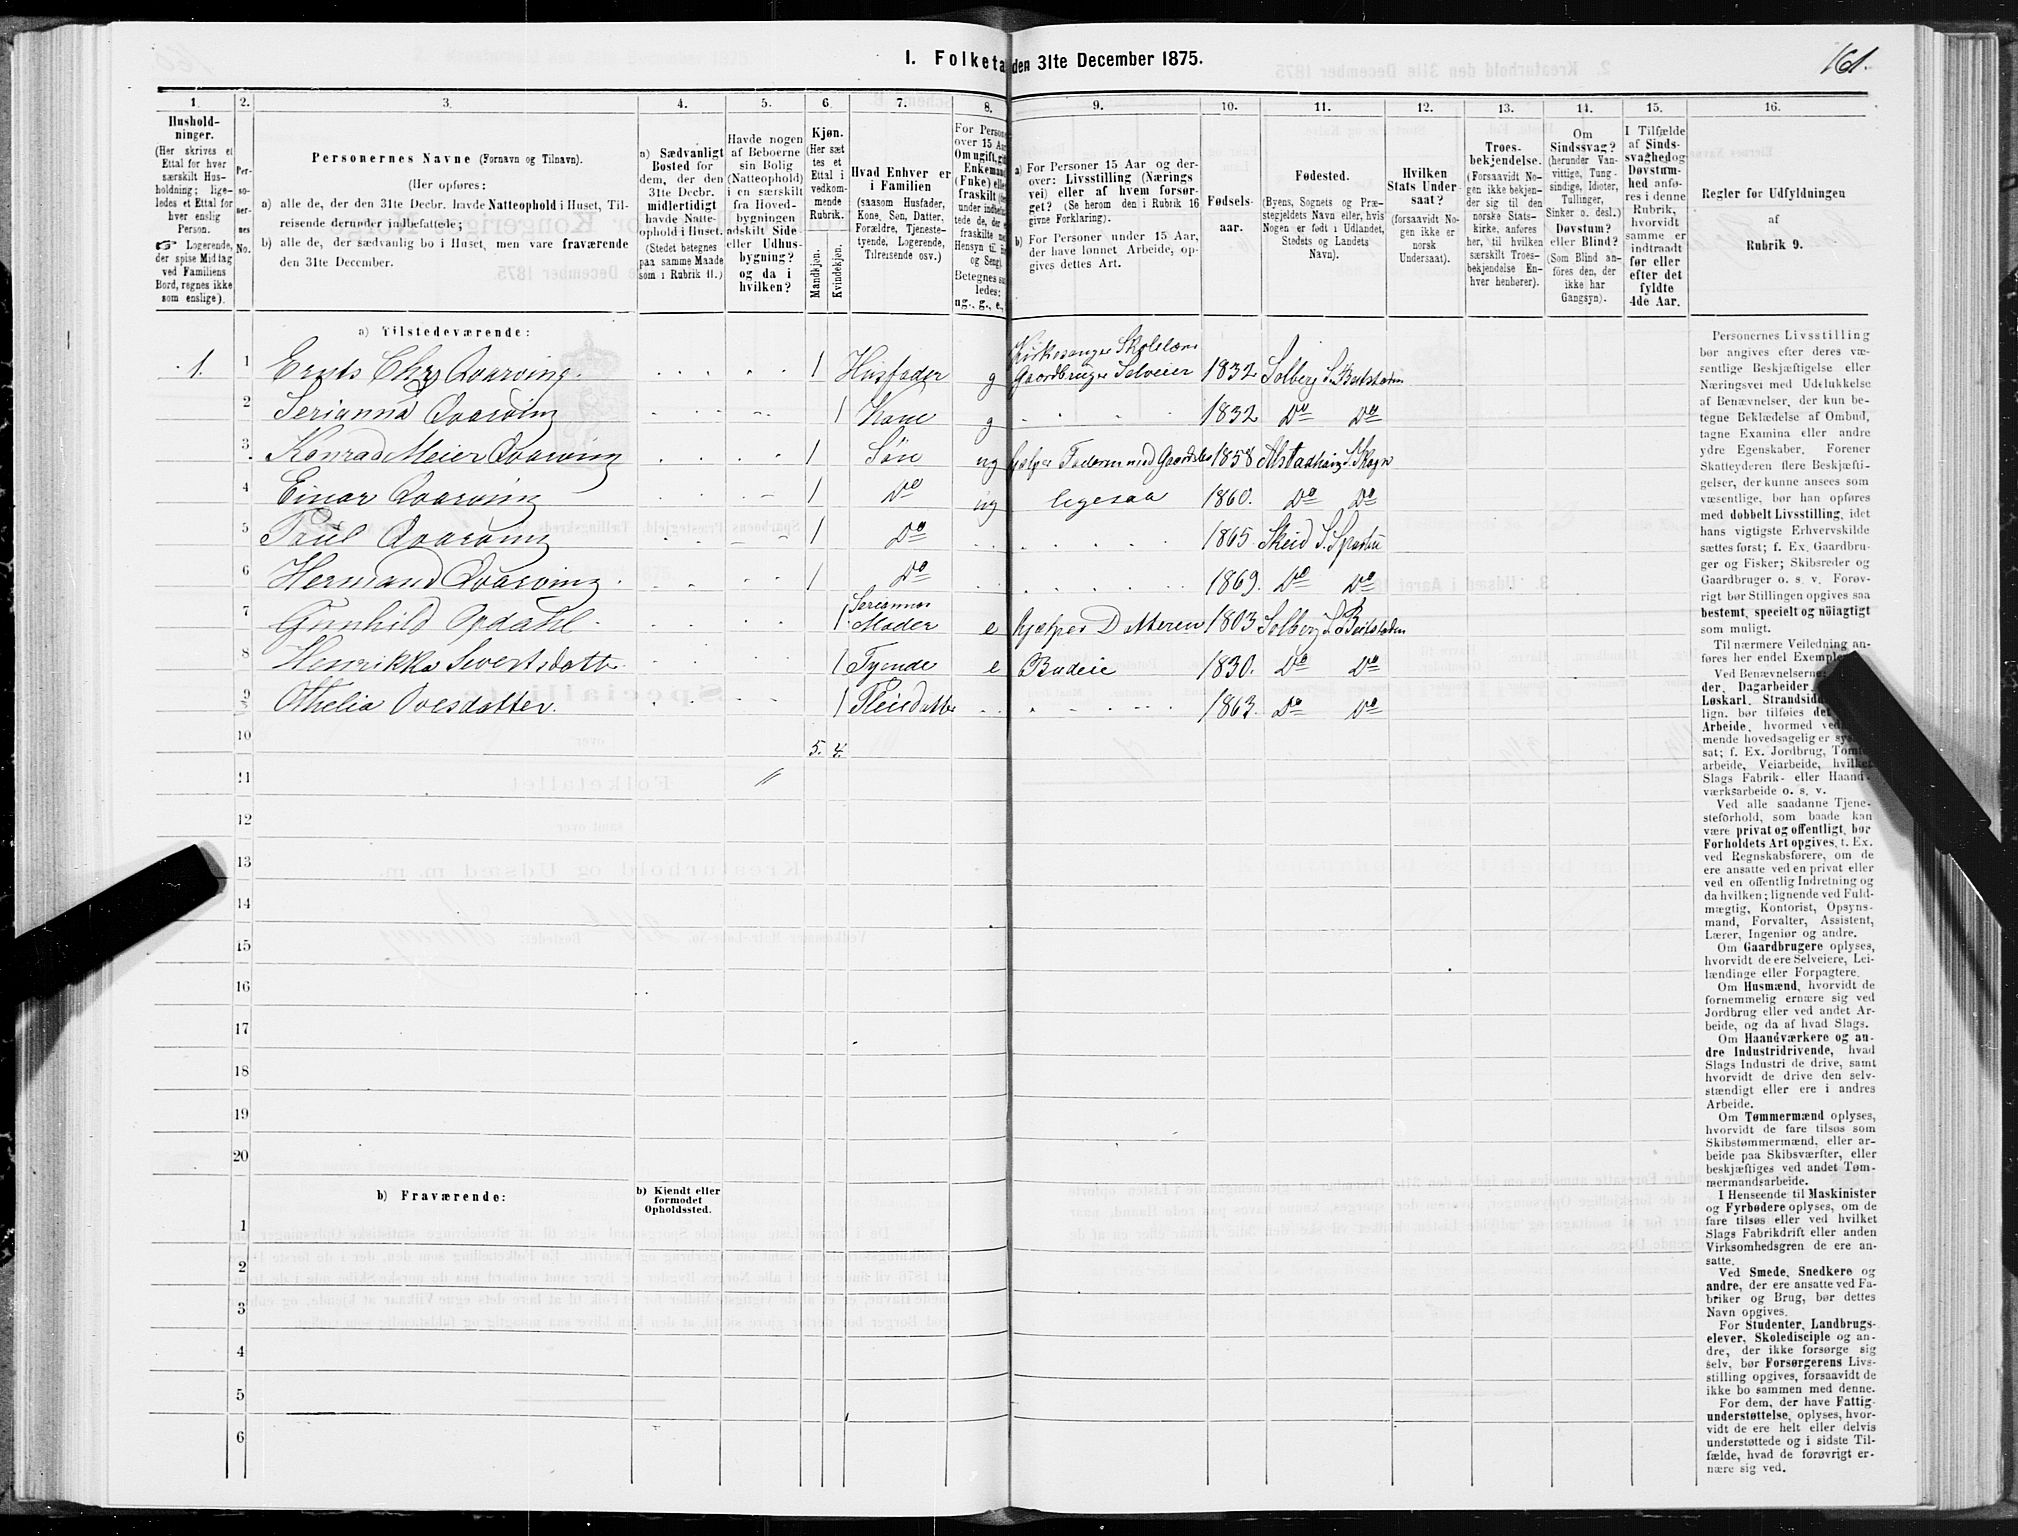 161.
I. Folketa den 31te December 1875.
1. 2. 3. 4. 5. 6. 7. 8. 9. 10. 11. 12. 13. 14. 15. 16.
Hushold-
ninger.
(Her skrives et
Ettal for hver
særskilt Hus-
holdning; lige-
ledes et Ettal for
hver enslig
Person.
☞ Logerende,
der spise Middag
ved Familiens
Bord, regnes ikke
som enslige).
Per-
so-
ner-
nes
No.
Personernes Navne (Fornavn og Tilnavn).
(Her opføres:
a) alle de, der den 31te Decbr. havde Natteophold i Huset, Til-
reisende derunder indbefattede;
b) alle de, der sædvanlig bo i Huset, men vare fraværende
den 31te December.
a) Sædvanligt
Bosted for
dem, der den
31te Decbr.
midlertidigt
havde Natte-
ophold i Huset.
(Stedet betegnes
paa samme Maade
som i Rubrik 11.)
Havde nogen
af Beboerne
sin Bolig
(Natteophold)
i en særskilt
fra Hoved-
bygningen
adskilt Side-
eller Udhus-
bygning?
og da i
hvilken?
Kjøn.
(Her sæt-
tes et
Ettal i
vedkom-
mende
Rubrik.
Mandkjøn.
Kvindekjøn.
Hvad Enhver er
i Familien
(saasom Husfader,
Kone, Søn, Datter,
Forældre, Tjeneste-
tyende, Logerende,
Tilreisende osv.)
For Persone
over 15 Aar
Om ugift, gif
Enkemand
(Enke) elle
fraskilt
under
tede de, der
fraskilte
Hensyn til
og Seng).
Betegnes saa
ledes:
ug., g., e.,
a) For Personer 15 Aar og der-
over: Livsstilling (Nærings
vei) eller af hvem forsør-
get? (Se herom den i Rubrik 16
givne Forklaring).
b) For Personer under 15 Aar,
der have lønnet Arbeide, op-
gives dettes Art.
Fødsels-
aar.
Fødested.
(Byens, Sognets og Præ-
stegjeldets Navn eller, hvis
Nogen er født i Udlandet,
Stedets og Landets
Navn).
Hvilken
Stats Under-
saat?
(forsaavidt No-
gen ikke er
norsk
Undersaat).
Troes-
bekjendelse.
(Forsaavidt No-
gen ikke bekjen-
der sig til den
norske Stats-
kirke, anføres
her, til hvilken
særskilt Troes-
bekjendelse En-
hver henhører).
Om
Sindssvag?
(herunder Van-
vittige, Tung-
sindige, Idioter,
Tullinger,
Sinker o. desl.)
Døvstum?
eller Blind?
(Som Blind an-
føres den, der
ikke har
Gangsyn).
I Tilfælde
af Sinds-
svaghed og
Døvstum-
hed anfø-
res i denne
Rubrik,
hvorvidt
samme er
indtraadt
før eller
efter det
fyldte
4de Aar.
Regler for Udfyldningen
af
Rubrik 9.
a) Tilstedeværende:
1. 1 Ernts Chr. Qvarving. 1 Husfader g Kirkesanger Skolelærer Gaardbruger Selveier 1832 Solberg S. Beitstaden
2 Serianna Qvarving 1 Kone g 1832 Do Do
3 Konrad Meier Qvarving 1 Søn ug hjælper Faderen med Gaardsbr 1858 Alstadhaug S. Skogn
4 Einar Qvarving 1 Do ug ligesaa 1860. Do Do
5 Paul Qvarving 1 Do 1865 Skeid S. Sparbu
6 Hermand Qvarving 1 Do 1869. Do Do
7 Gunhild Opdahl. 1 Seriannas Moder e hjælper Datteren 1803 Solberg S. Beitstaden
8 Henrikka Sivertsdatter 1 Tyende e Budeie 1830. Do Do
9 Othelia Ovesdatter. 1 Pleiedatter 1863. Do Do
10 5. 4.
11
12
13
14
15
16
17
18
19
20
b) Fraværende:
b) Kjendt eller
formodet
Opholdssted.
1
2
3
4
5
6
Personernes Livsstilling
bør angives efter deres væ-
sentlige Beskjæftigelse eller
Næringsvei med Udelukkelse
af Benævnelser, der kun be-
tegne Beklædelse af Ombud,
tagne Examina eller andre
ydre Egenskaber. Forener
Skatteyderen flere Beskjæfti-
gelser, der kunne ansees som
væsentlige, bør han opføres
med dobbelt Livsstilling, idet
hans vigtigste Erhvervskilde
sættes først; f. Ex. Gaardbru-
ger og Fisker; Skibsreder og
Gaardbruger o. s. v. Forøv-
rigt bør Stillingen opgives saa
bestemt, specielt og nöiagtigt
som muligt.
Til nærmere Veiledning an-
føres her endel Exemple
Ved Benævnelserne
der, Dagarbeider,
Løskarl, Strandsid
lign. bør tilføies det
Arbeide, hvormed ved
mende hovedsagelig er sys
sat; f. Ex. Jordbrug, Tømm
arbeide, Veiarbeide, hvilket
Slags Fabrik- eller Haand-
værksarbeide o. s. v.
Ved alle saadanne Tjene-
steforhold, som baade kan
være privat og offentligt, bør
Forholdets Art opgives, t. Ex.
ved Regnskabsførere, om de
ere ansatte ved en privat eller
ved en offentlig Indretning og
da hvilken; lignende ved Fuld-
mægtig, Kontorist, Opsyns-
mand, Forvalter, Assistent,
Lærer, Ingeniør og andre.
Om Gaardbrugere oplyses,
hvorvidt de ere Selveiere, Lei-
lændinge eller Forpagtere.
Om Husmænd, hvorvidt de
fornemmelig ernære sig ved
Jordbrug eller ved andet Ar-
beide, og da af hvad Slags.
Om Haandværkere og an-
dre Industridrivende, hvad
Slags Industri de drive, samt
hvorvidt de drive den selv-
stændigt eller ere i andres
Arbeide.
Om Tømmermænd oplyses,
hvorvidt de fare tilsøs som
Skibstømmermænd, eller ar-
beide paa Skibsværfter, eller
beskjæftiges ved andet Tøm-
mermandsarbeide.
I Henseende til Maskinister
og Fyrbødere oplyses, om de
fare tilsøs eller ved hvilket
Slags Fabrikdrift eller anden
Virksomhedsgren de ere an-
satte.
Ved Smede, Snedkere og
andre, der ere ansatte ved Fa-
briker og Brug, bør dettes
Navn opgives.
For Studenter, Landbrugs-
elever, Skoledisciple og an-
dre, der ikke forsørge sig
selv, bør Forsørgerens Livs-
stilling opgives, forsaavidt de
ikke bo sammen med denne.
For dem, der have Fattig-
understøttelse, oplyses, hvor-
vidt de ere helt eller delvis
understøttede og i sidste Til-
fælde, hvad de forøvrigt er-
nære sig ved.